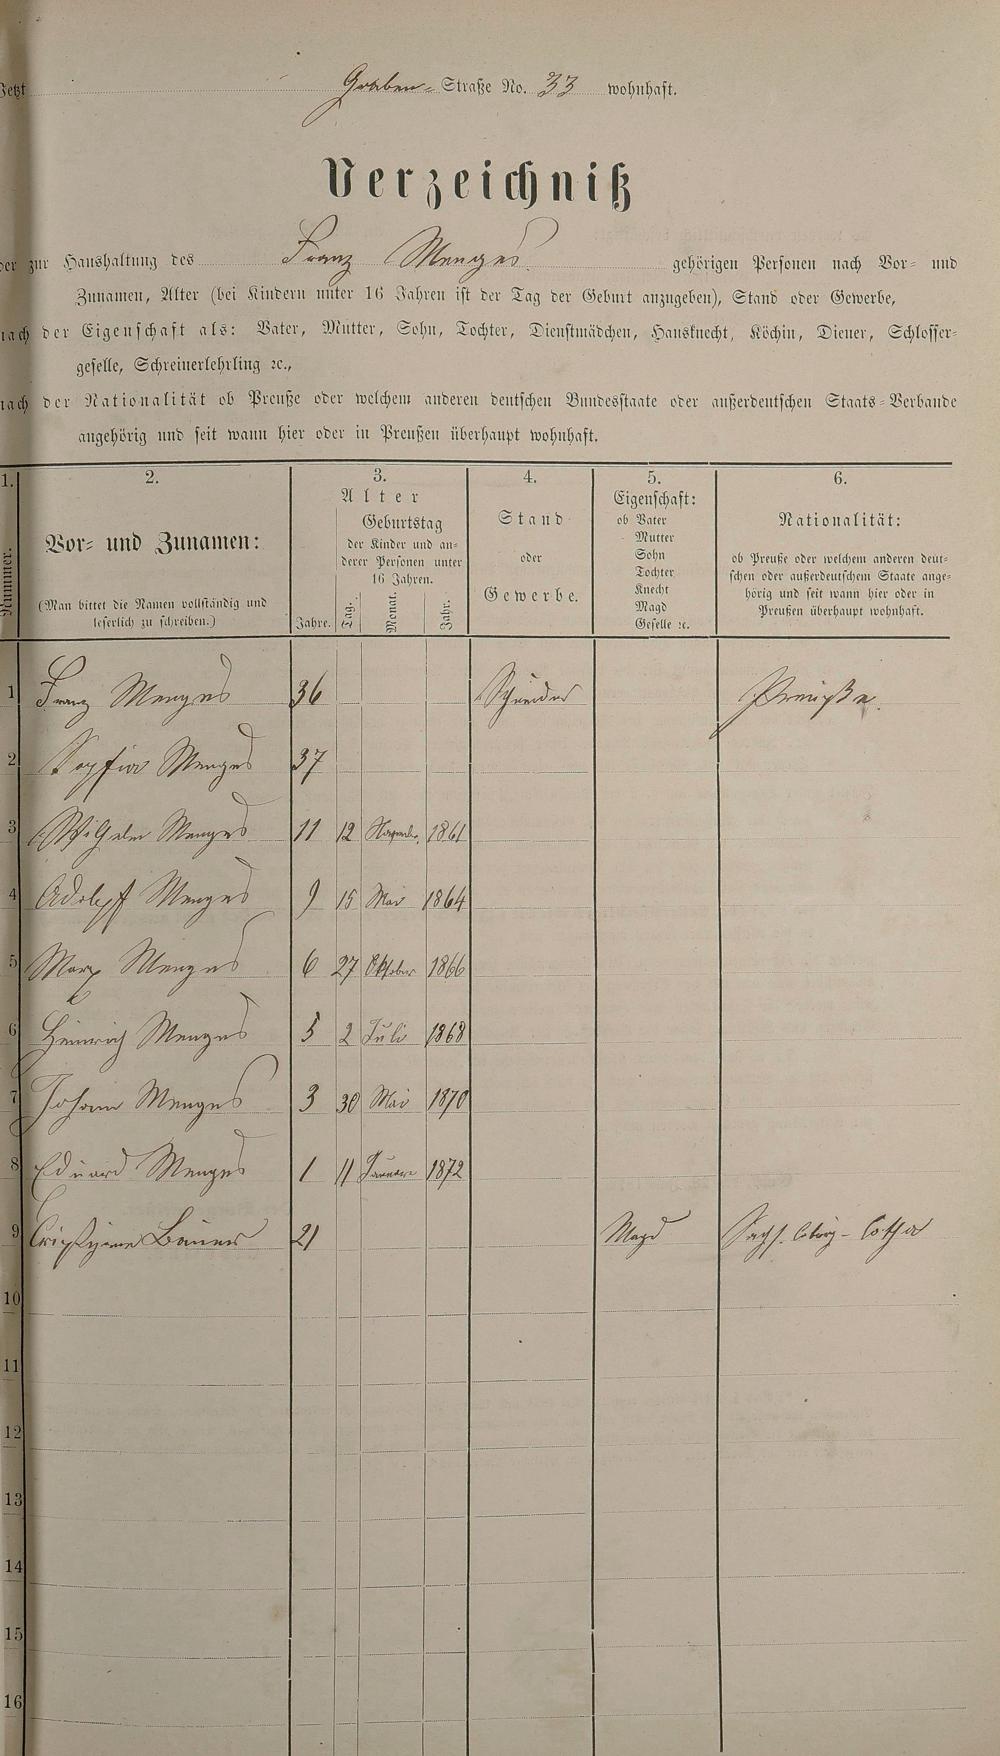 Jetzt Graben- Straße No. 33 wohnhaft.
Verzeichniß
der zur Haushaltung des Franz Menges gehörigen Personen nach Vor- und
Zunamen, Alter (bei Kindern unter 16 Jahren ist der Tag der Geburt anzugeben), Stand oder Gewerbe,
nach der Eigenschaft als: Vater, Mutter, Sohn, Tochter, Dienstmädchen, Hausknecht, Köchin, Diener, Schlosser-
geselle, Schreinerlehrling ꝛc.,
nach der Nationalität ob Preuße oder welchem anderen deutschen Bundesstaate oder außerdeutschen Staats-Verbande
angehörig und seit wann hier oder in Preußen überhaupt wohnhaft.
1. 2. 3. 4. 5. 6.
Nummer.
Vor- und Zunamen:
(Man bittet die Namen vollständig und
leserlich zu schreiben.)
Alter
Geburtstag
der Kinder und an-
derer Personen unter
16 Jahren.
Jahre. Tag. Monat. Jahr.
Stand
oder
Gewerbe.
Eigenschaft:
ob Vater
Mutter
Sohn
Tochter
Knecht
Magd
Geselle ꝛc.
Nationalität:
ob Preuße oder welchem anderen deut-
schen oder außerdeutschem Staate ange-
hörig und seit wann hier oder in
Preußen überhaupt wohnhaft.
1 Franz Menges 36 Schneider Preuße.
2 Sophia Menges 37
3 Wilhelm Menges 11 12 November 1861
4 Adolph Menges 9 15 Mai 1864
5 Marx Menges 6 27 Oktober 1866
6 Heinrich Menges 5 2 Juli 1868
7 Johann Menges 3 30 Mai 1870
8 Eduard Menges 1 11 Januar 1872
9 Bauer 21 Magd Sachs. Coburg-Cotha
10
11
12
13
14
15
16